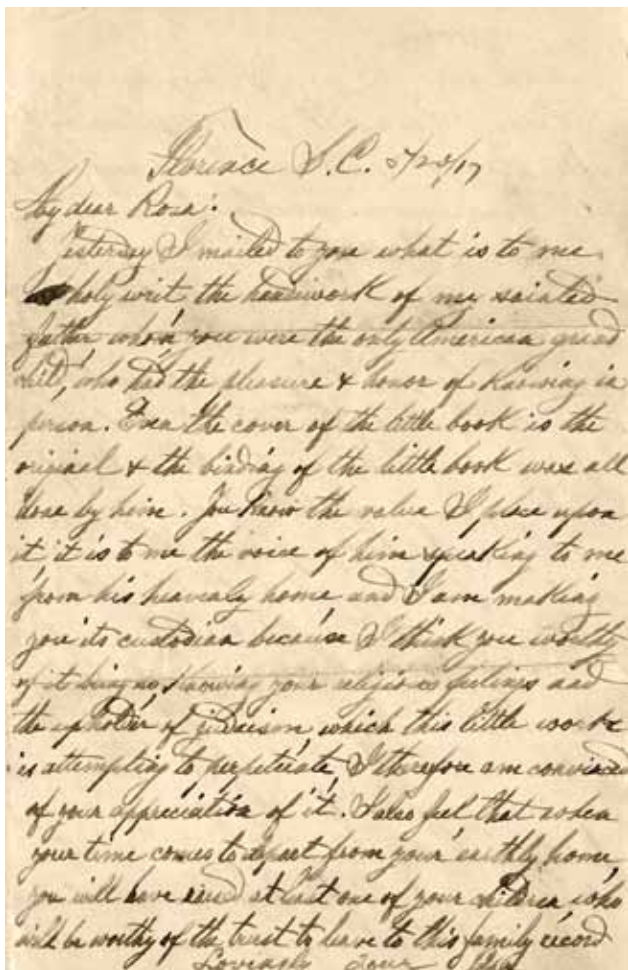 Florence S.C. 5/20/17
My dear Rosa:
Yesterday I mailed to you what is to me
holy writ the handiwork of my sainted
father whom you were the only American grand
child, who had the pleasure & honor of knowing in
person. Even the cover of the little book is the
original & the binding of the little book was all
done by him. You know the value I place upon
it it is to me the voice of him speaking to me
from his heavenly home and I am making
you its custodian because I think you worthy
of it knowing your religious feelings and
the upholder of judaism which this little work
is attempting to perpetuate, I therefore am convinced
of your appreciation of it. I also feel that when
your time comes to depart from your earthly home
you will have at last one of your children who
will be worthy of the trust to leave to this family record
Lovingly Your